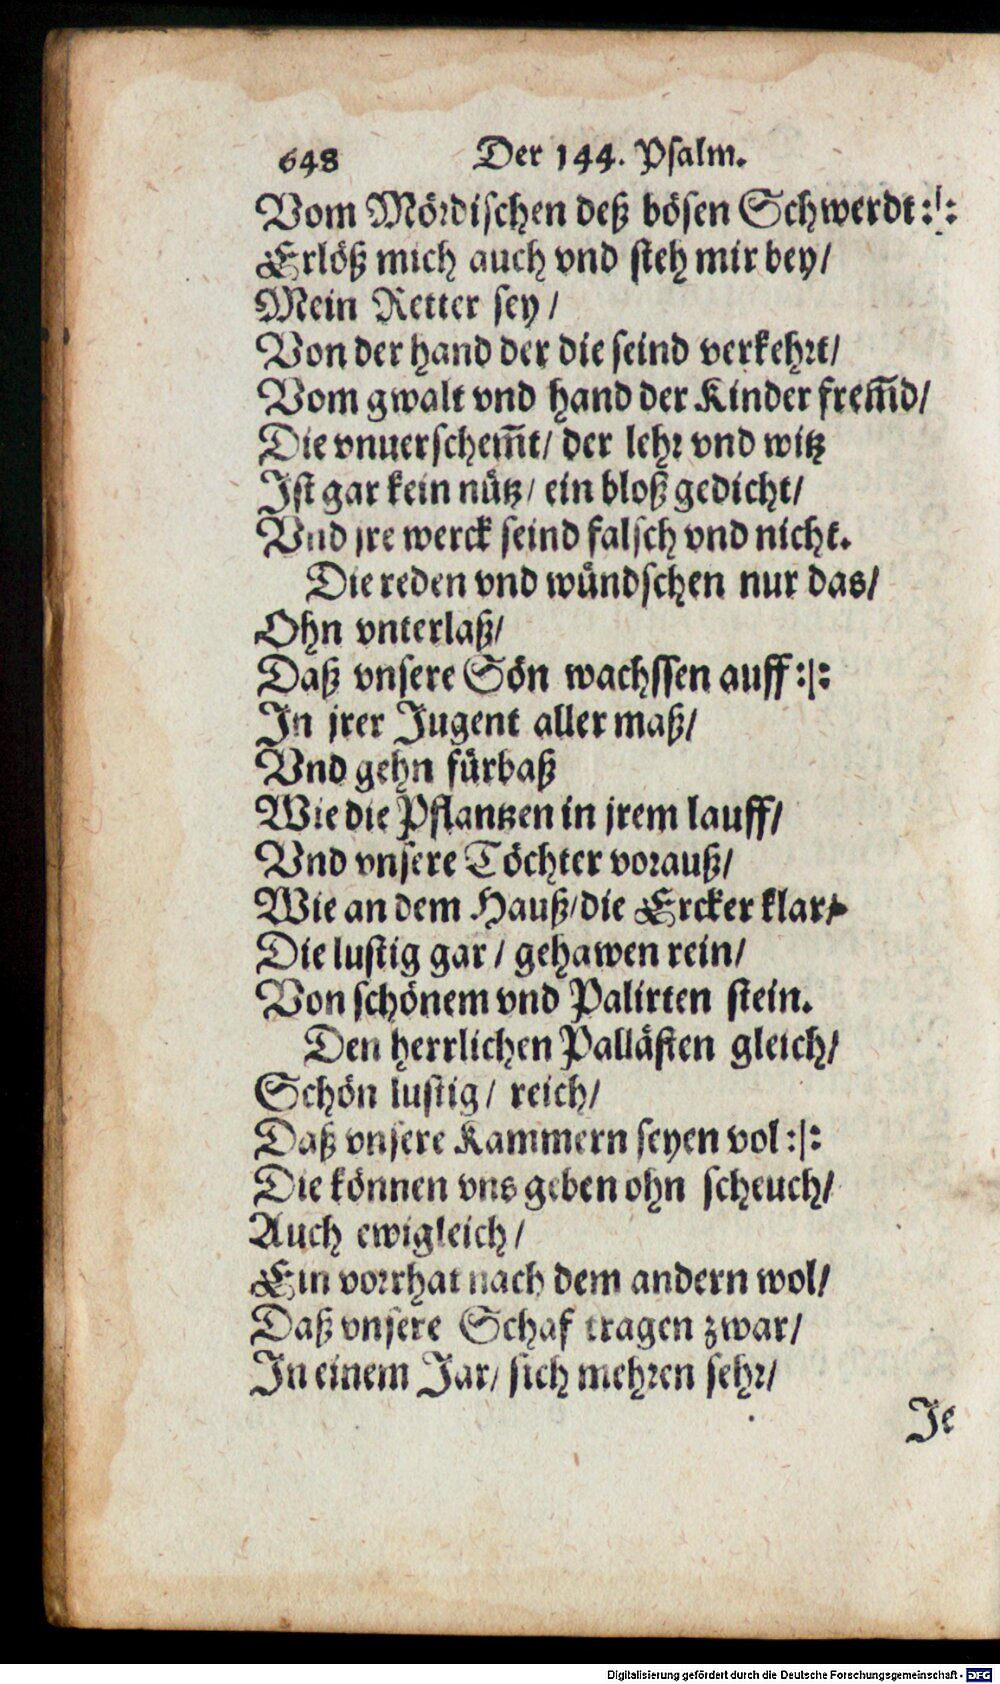 648 Der 144. Psalm.
Vom Mördischen deß bösen Schwerdt :|:
Erlöß mich auch vnd steh mir bey/
Mein Retter sey/
Von der hand der die seind verkehrt/
Vom gwalt vnd hand der Kinder frem̃d/
Die vnuerschem̃t/ der lehr vnd witz
Ist gar kein nütz/ ein bloß gedicht/
Vnd jre werck seind falsch vnd nicht.
Die reden vnd wündschen nur das/
Ohn vnterlaß/
Daß vnsere Sön wachssen auff :|:
In jrer Jugent aller maß/
Vnd gehn fürbaß
Wie die Pflantzen in jrem lauff/
Vnd vnsere Töchter vorauß/
Wie an dem Hauß/ die Ercker klar/
Die lustig gar/ gehawen rein/
Von schönem vnd Palirten stein.
Den herrlichen Pallästen gleich/
Schön lustig/ reich/
Daß vnsere Kammern seyen vol :|:
Die können vns geben ohn scheuch/
Auch ewigleich/
Ein vorrhat nach dem andern wol/
Daß vnsere Schaf tragen zwar/
In einem Jar/ sich mehren sehr/
Je
Digitalisierung gefördert durch die Deutsche Forschungsgemeinschaft - DFG